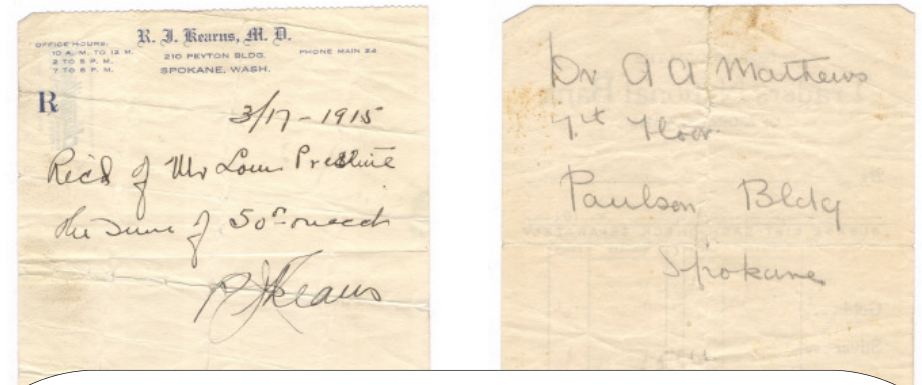 R. J. Kearns, M. D.
OFFICE HOURS:
10 A. M. TO 12 M.
2 TO 5 P. M.
7 TO 8 P. M.
210 PEYTON BLDG.
SPOKANE, WASH.
PHONE MAIN 24
R
3/17-1915
Rec'd of Mr Louis
the sum of 50
R J Kearns
Dr A A Mathews
7th Floor
Paulson Bldg
Spokane